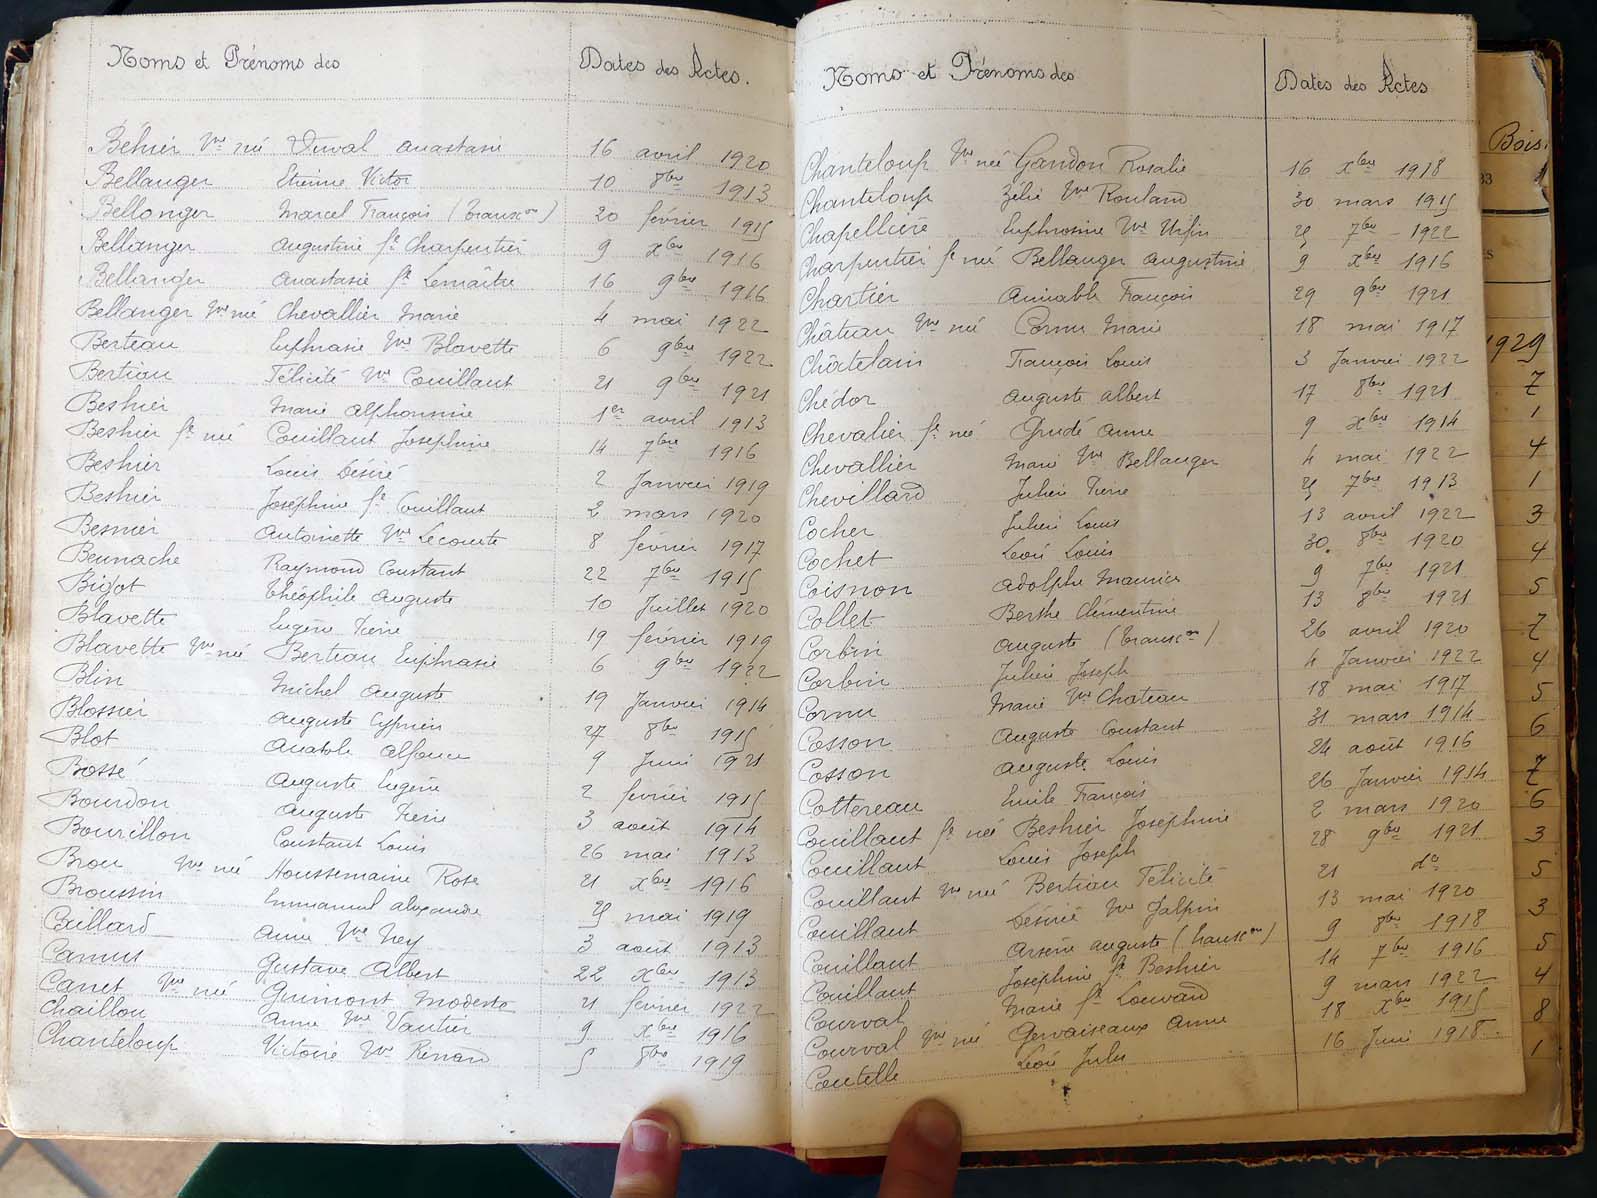 Noms et Prénoms des Dates des Actes.
Béhier Vve née Duval Anastasie 16 avril 1920
Bellanger Etienne Victor 10 8bre 1913
Bellanger Marcel François (Transcon) 20 février 1915
Bellanger Augustine fe Charpentier 9 Xbre 1916
Bellanger Anastasie fe Lemaître 16 9bre 1916
Bellanger Vve née Chevallier Marie 4 mai 1922
Berteau Euphrasie Vve Blavette 6 9bre 1922
Bertiau Félicité Vve Couillaut 21 9bre 1921
Beshier Marie Alphonsine 1er avril 1913
Beshier fe née Couillaut Joséphine 14 7bre 1916
Beshier Louis Désiré 2 Janvier 1919
Beshier Joséphine fe Couillaut 2 mars 1920
Besnier Antoinette Vve Lecomte 8 février 1917
Beunache Raymond Constant 22 7bre 1915
Bigot Théophile Auguste 10 Juillet 1920
Blavette Eugène Pierre 19 février 1919
Blavette Vve née Bertiau Euphrasie 6 9bre 1922
Blin Michel Auguste 19 Janvier 1914
Blossier Auguste Cyprien 27 8bre 1915
Blot Anatole Alfonse 9 Juin 1921
Bossé Auguste Eugène 2 février 1915
Bourdon Auguste Pierre 3 août 1914
Bourillon Constant Louis 26 mai 1913
Brou Vve née Houssemaine Rose 21 Xbre 1916
Broussin Emmanuel Alexandre 5 mai 1919
Buillard Anne Vve Ney 3 août 1913
Camus Gustave Albert 22 Xbre 1913
Canet Vve née Guimont Modeste 21 février 1922
Chaillou Anne Vve Vautier 9 Xbre 1916
Chanteloup Victoire Vve Renard 5 8bre 1919
Noms et Prénoms des Dates des Actes
Chanteloup Vve née Gandon Rosalie 16 Xbre 1918
Chanteloup Zélie Vve Rouland 30 mars 1915
Chapellière Euphrosine Vve 7bre 1922
Charpentier fe née Bellanger Augustine 9 Xbre 1916
Chartier Aimable François 29 9bre 1921
Château Vve née Cornu Marie 18 mai 1917
Châtelain François Louis 3 Janvier 1922
Chédor Auguste Albert 17 8bre 1921
Chevalier fe née Grudé Anne 9 Xbre 1914
Chevallier Marie Vve Bellanger 4 mai 1922
Chevillard Julien Pierre 7bre 1913
Cocher Julien Louis 13 avril 1922
Cochet Léon Louis 30 8bre 1920
Coisnon Adolphe Maurice 9 7bre 1921
Collet Berthe Clémentine 13 8bre 1921
Corbin Auguste (Transcon) 26 avril 1920
Corbin Julien Joseph 4 Janvier 1922
Cornu Marie Vve Chateau 18 mai 1917
Cosson Auguste Constant 31 mars 1914
Cosson Auguste Louis 24 août 1916
Cottereau Emile François 26 Janvier 1914
Couillaut fe née Beshier Joséphine 2 mars 1920
Couillaut Louis Joseph 28 9bre 1921
Couillaut Vve née Bertiau Félicité 21 do
Couillaut Désirée Vve Jalpin 13 mai 1920
Couillaut Arsène Auguste (Transcon) 9 8bre 1918
Couillaut Joséphine fe Beshier 14 7bre 1916
Courval Marie fe Louvard 9 mars 1922
Courval Vve née Gervaiseaux Anne 18 Xbre 1915
Coutelle Léon Jules 16 Juin 1918
Bois.
33
1929
7
1
4
1
3
4
5
7
4
5
6
7
6
3
5
3
5
4
8
1